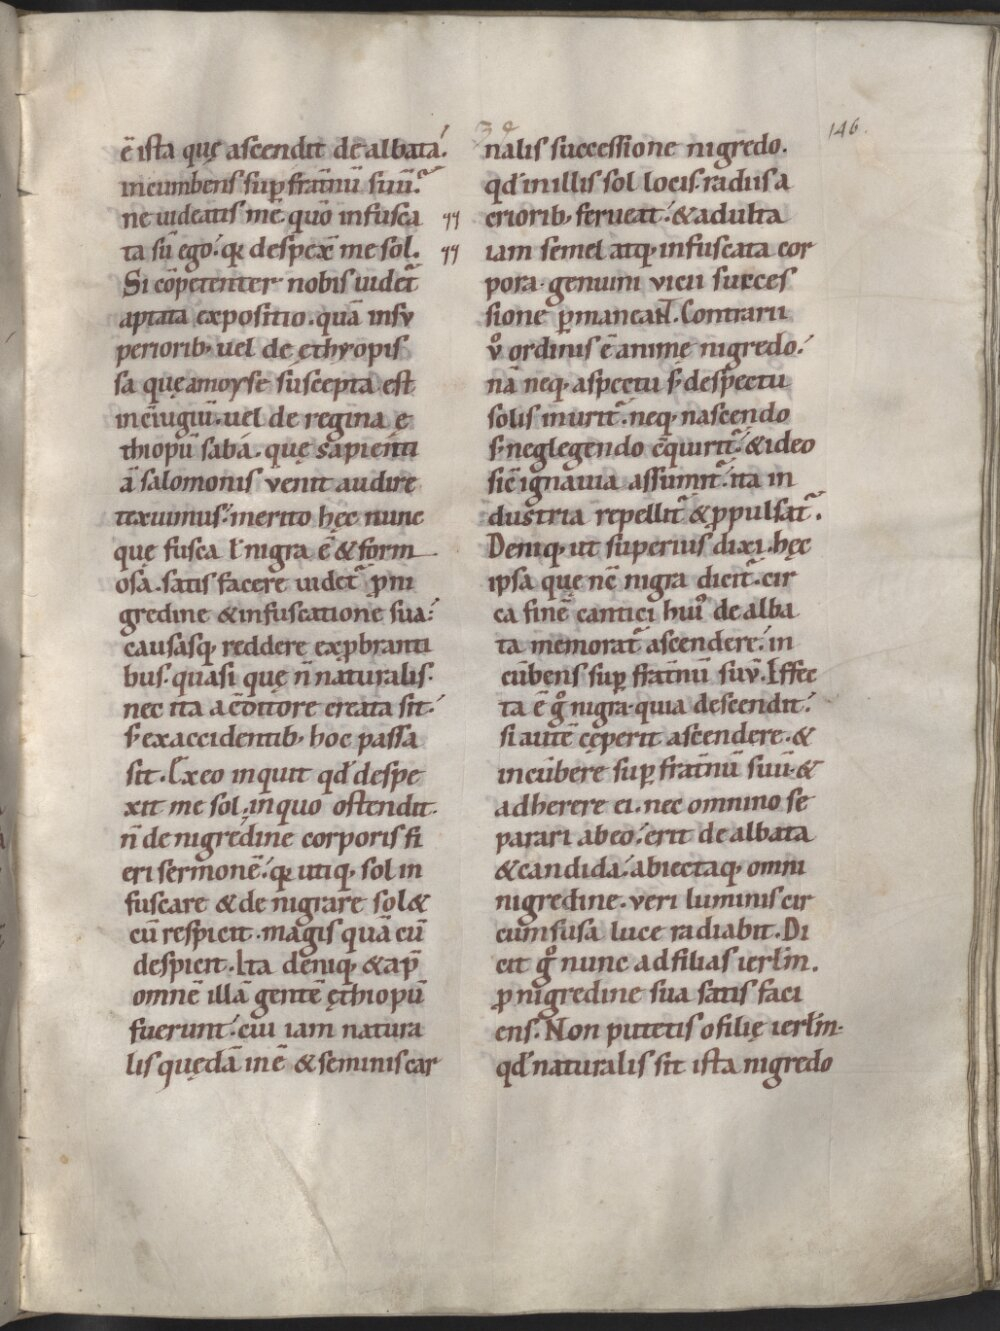 146.
39
ē ista quę ascendit dealbata.́
incumbens sup̱ frat̄nū suū.᷉
ne uideatis mē quō infusca
ta sū ego.́ qꝛ despex̄ me sol.
Si cōpetenter nobis uidet᷉
aptata expositio. quā insv
periorib; uel de ęthyopis
sa quę amoyse suscepta est
inc̄iugiū. uel de regina ę
thiopū sabá. quę sapienti
ā salomonis venit audire
texuimus.́ merito hęc nunc
quę fusca ł nigra ē & form
osa. satis facere uidet᷉ p̱ ni
gredine & infuscatione sua.́
causasq; reddere exp̱branti
bus. quasi quę n̄ naturalis.
nec ita a c̄ditore creata sit.́
s; ex accidentib; hoc passa
sit. Ex eo inquit qđ despe
xit me sol. in quo ostendit
n̄ de nigredine corporis fi
eri sermonē.́ qꝛ utiq; sol in
fuscare & denigrare sol&
cū respicit. magis quā cū
despicit. Ita deniq; & ap̄
omnē illā gentē ęthiopū
fuerunt.́ cui iam natura
lis quędā inē & seminis car
nalis successione nigredo.
qđ in illis sol locis. radiis a
criorib; ferueat.́ & adulta
iam semel atq; infuscata cor
pora. genuini vicii succes
sione p̱maneant. Contrarii
v̊ ordinis ē animę nigredo.́
nā neq; aspectu s; despectu
solis inurit᷉. neq; nascendo
s; neglegendo c̄quirit᷉. & ideo
sic̄ ignauia assumit᷉. ita in
dustria repellit᷉ & p̱pulsat᷉.
Deniq; ut superius dixi. hęc
ipsa quę nc̄ nigra dicit᷉. cir
ca finē cantici hui᷒ de alba
ta memorat᷉ ascendere.́ in
cūbens sup̱ frat̄nū suū. Effec
ta ē g̊ nigra. quia descendit.́
si autē cęperit ascendere. &
incūbere sup̱ frat̄nū suū. &
adherere ei. nec omnino se
parari ab eo.́ erit dealbata
& candida.́ abiectaq; omni
nigredine. veri luminis cir
cumfusa luce radiabit. Di
cit g̊ nunc ad filias ierlm̄.
p̱ nigredine sua satis faci
ens. Non putetis o filię ierlm̄.
qđ naturalis sit ista nigredo